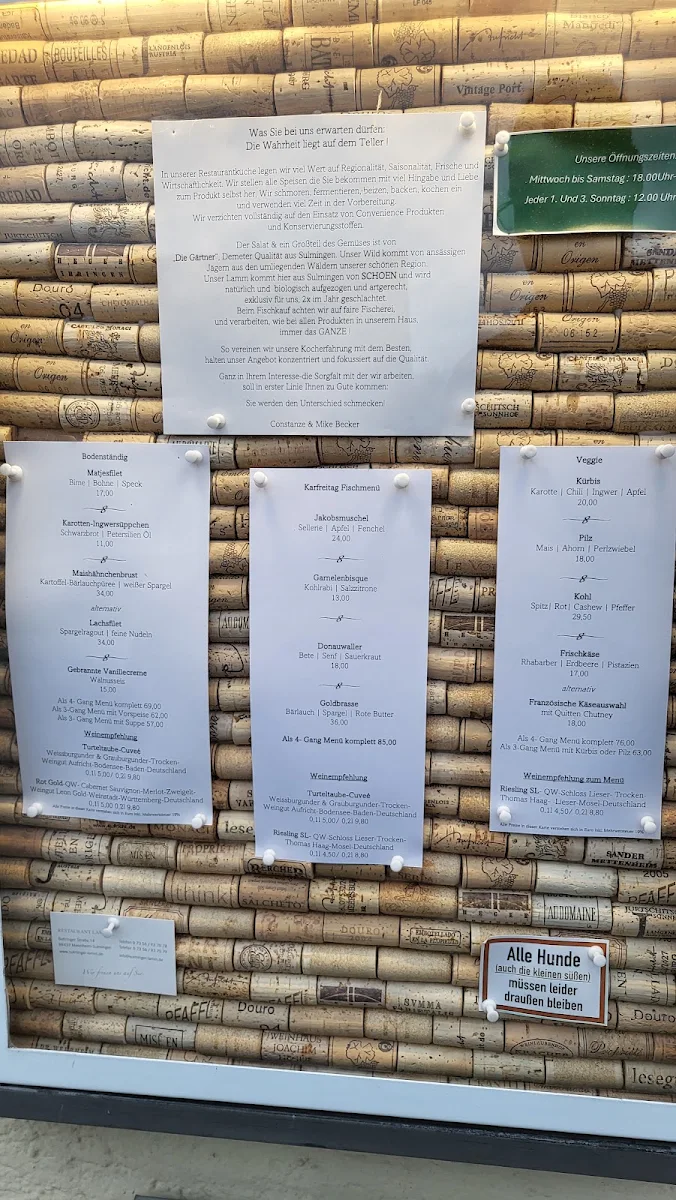 Was Sie bei uns erwarten dürfen:
Die Wahrheit liegt auf dem Teller !
In unserer Restaurantküche legen wir viel Wert auf Regionalität, Saisonalität, Frische und
Wirtschaftlichkeit. Wir stellen alle Speisen die Sie bekommen mit viel Hingabe und Liebe
zum Produkt selbst her. Wir schmoren, fermentieren, beizen, backen, kochen ein
und verwenden viel Zeit in der Vorbereitung.
Wir verzichten vollständig auf den Einsatz von Convenience Produkten
und Konservierungsstoffen.
Der Salat & ein Großteil des Gemüses ist von
„Die Gärtner“, Demeter Qualität aus Sulmingen. Unser Wild kommt von ansässigen
Jägern aus den umliegenden Wäldern unserer schönen Region.
Unser Lamm kommt hier aus Sulmingen von SCHOEN und wird
natürlich und biologisch aufgezogen und artgerecht,
exklusiv für uns, 2x im Jahr geschlachtet.
Beim Fischkauf achten wir auf faire Fischerei,
und verarbeiten, wie bei allen Produkten in unserem Haus,
immer das GANZE !
So vereinen wir unsere Kocherfahrung mit dem Besten,
halten unser Angebot konzentriert und fokussiert auf die Qualität
Ganz in Ihrem Interesse-die Sorgfalt mit der wir arbeiten,
soll in erster Linie Ihnen zu Gute kommen:
Sie werden den Unterschied schmecken!
Constanze & Mike Becker
Unsere Öffnungszeiten
Mittwoch bis Samstag : 18.00Uhr-
Jeder 1. Und 3. Sonntag : 12.00 Uhr
Bodenständig
Matjesfilet
Birne | Bohne | Speck
17,00
Karotten-Ingwersüppchen
Schwarzbrot | Petersilien Öl
11,00
Maishähnchenbrust
Kartoffel-Bärlauchpüree | weißer Spargel
34,00
alternativ
Lachsfilet
Spargelragout | feine Nudeln
34,00
Gebrannte Vanillecreme
Walnusseis
15,00
Als 4- Gang Menü komplett 69,00
Als 3-Gang Menü mit Vorspeise 62,00
Als 3- Gang Menü mit Suppe 57,00
Weinempfehlung
Turteltaube-Cuveé
Weissburgunder & Grauburgunder-Trocken-
Weingut Aufricht-Bodensee-Baden-Deutschland
0,1l 5,00/ 0,2l 9,80
Rot Gold-QW- Cabernet Sauvignon-Merlot-Zweigelt-
Weingut Leon Gold-Weinstadt-Württemberg-Deutschland
0,1l 5,00 0,2l 9,80
Karfreitag Fischmenü
Jakobsmuschel
Sellerie | Apfel | Fenchel
24,00
Garnelenbisque
Kohlrabi | Salzzitrone
13,00
Donauwaller
Bete | Senf | Sauerkraut
18,00
Goldbrasse
Bärlauch | Spargel | Rote Butter
36,00
Als 4- Gang Menü komplett 85,00
Weinempfehlung
Turteltaube-Cuveé
Weissburgunder & Grauburgunder-Trocken-
Weingut Aufricht-Bodensee-Baden-Deutschland
0,1l 5,00/ 0,2l 9,80
Riesling SL- QW-Schloss Lieser-Trocken-
Thomas Haag-Mosel-Deutschland
0,1l 4,50/ 0,2l 8,80
Veggie
Kürbis
Karotte | Chili | Ingwer | Apfel
20,00
Pilz
Mais | Ahorn | Perlzwiebel
18,00
Kohl
Spitz| Rot| Cashew | Pfeffer
29,50
Frischkäse
Rhabarber | Erdbeere | Pistazien
17,00
alternativ
Französische Käseauswahl
mit Quitten Chutney
18,00
Als 4- Gang Menü komplett 76,00
Als 3-Gang Menü mit Kürbis oder Pilz 63,00
Weinempfehlung zum Menü
Riesling SL- QW-Schloss Lieser-Trocken-
Thomas Haag - Lieser-Mosel-Deutschland
0,1l 4,50/ 0,2l 8,80
Alle Hunde
(auch die kleinen süßen)
müssen leider
draußen bleiben
Vintage Port
BOUTEILLES
Douro
MIS EN
AUDOMAINE
SANDER
METTENHEIM
2005
WEINHAUS
JOACHIM
SVMMA